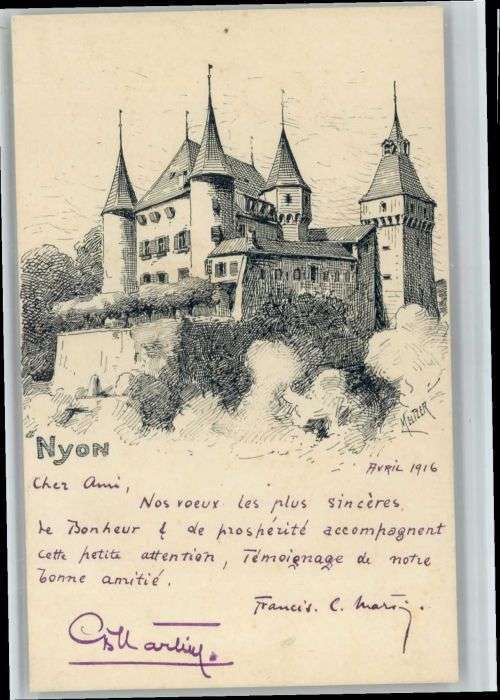 Melzer
Nyon
Avril 1916
Cher Ami,
Nos voeux les plus sincères,
de Bonheur & de prospérité accompagnent
cette petite attention, Témoignage de notre
bonne amitié.
Francis. C. Martin.
Martin.